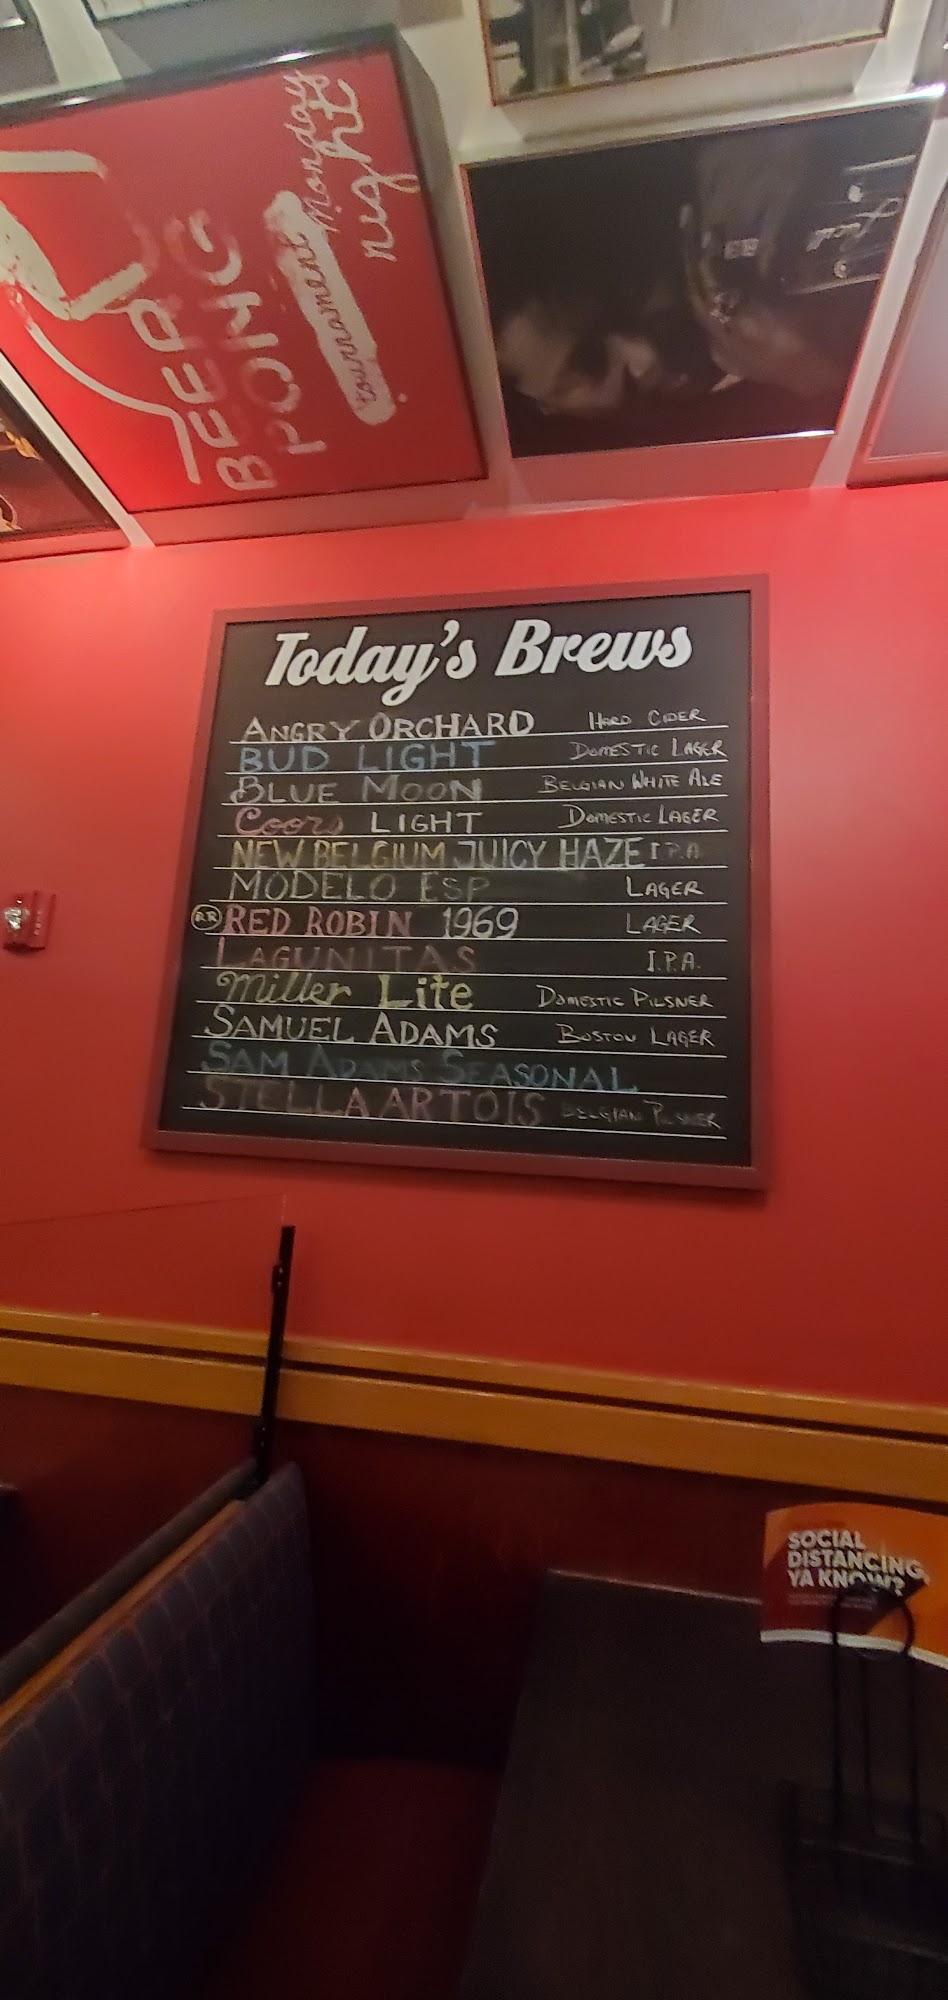 BEER
PONG
tournament
Monday
night
Today's Brews
ANGRY ORCHARD HARD CIDER
BUD LIGHT DOMESTIC LAGER
BLUE MOON BELGIAN WHITE ALE
Coors LIGHT DOMESTIC LAGER
NEW BELGIUM JUICY HAZE I.P.A.
MODELO ESP LAGER
RR RED ROBIN 1969 LAGER
LAGUNITAS I.P.A.
Miller Lite DOMESTIC PILSNER
SAMUEL ADAMS BOSTON LAGER
SAM ADAMS SEASONAL
STELLA ARTOIS BELGIAN PILSNER
SOCIAL
DISTANCING,
YA KNOW?